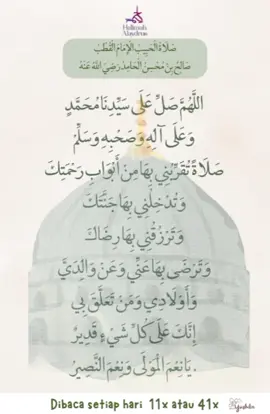 Hadhrami
Alaydrus
صَلَاةُ الْحَبِيْبِ الإِمَامِ الْقُطْبِ
صَالِحْ بِنْ مُحْسِنْ الْحَامِدْ رَضِيَ اللهُ عَنْهُ
اللَّهُمَّ صَلِّ عَلَى سَيِّدِنَا مُحَمَّدٍ
وَعَلَى آلِهِ وَصَحْبِهِ وَسَلِّمْ
صَلَاةً تُقَرِّبُنِي بِهَا مِنْ أَبْوَابِ رَحْمَتِكَ
وَتُدْخِلُنِي بِهَا جَنَّتَكَ
وَتَرْزُقُنِي بِهَا رِضَاكَ
وَتَرْضَى بِهَا عَنِّي وَعَنْ وَالِدَيَّ
وَأَوْلَادِي وَمَنْ تَعَلَّقَ بِي
إِنَّكَ عَلَى كُلِّ شَيْءٍ قَدِيرٌ
يَا نِعْمَ الْمَوْلَى وَنِعْمَ النَّصِيرُ.
Dibaca setiap hari 11x atau 41x